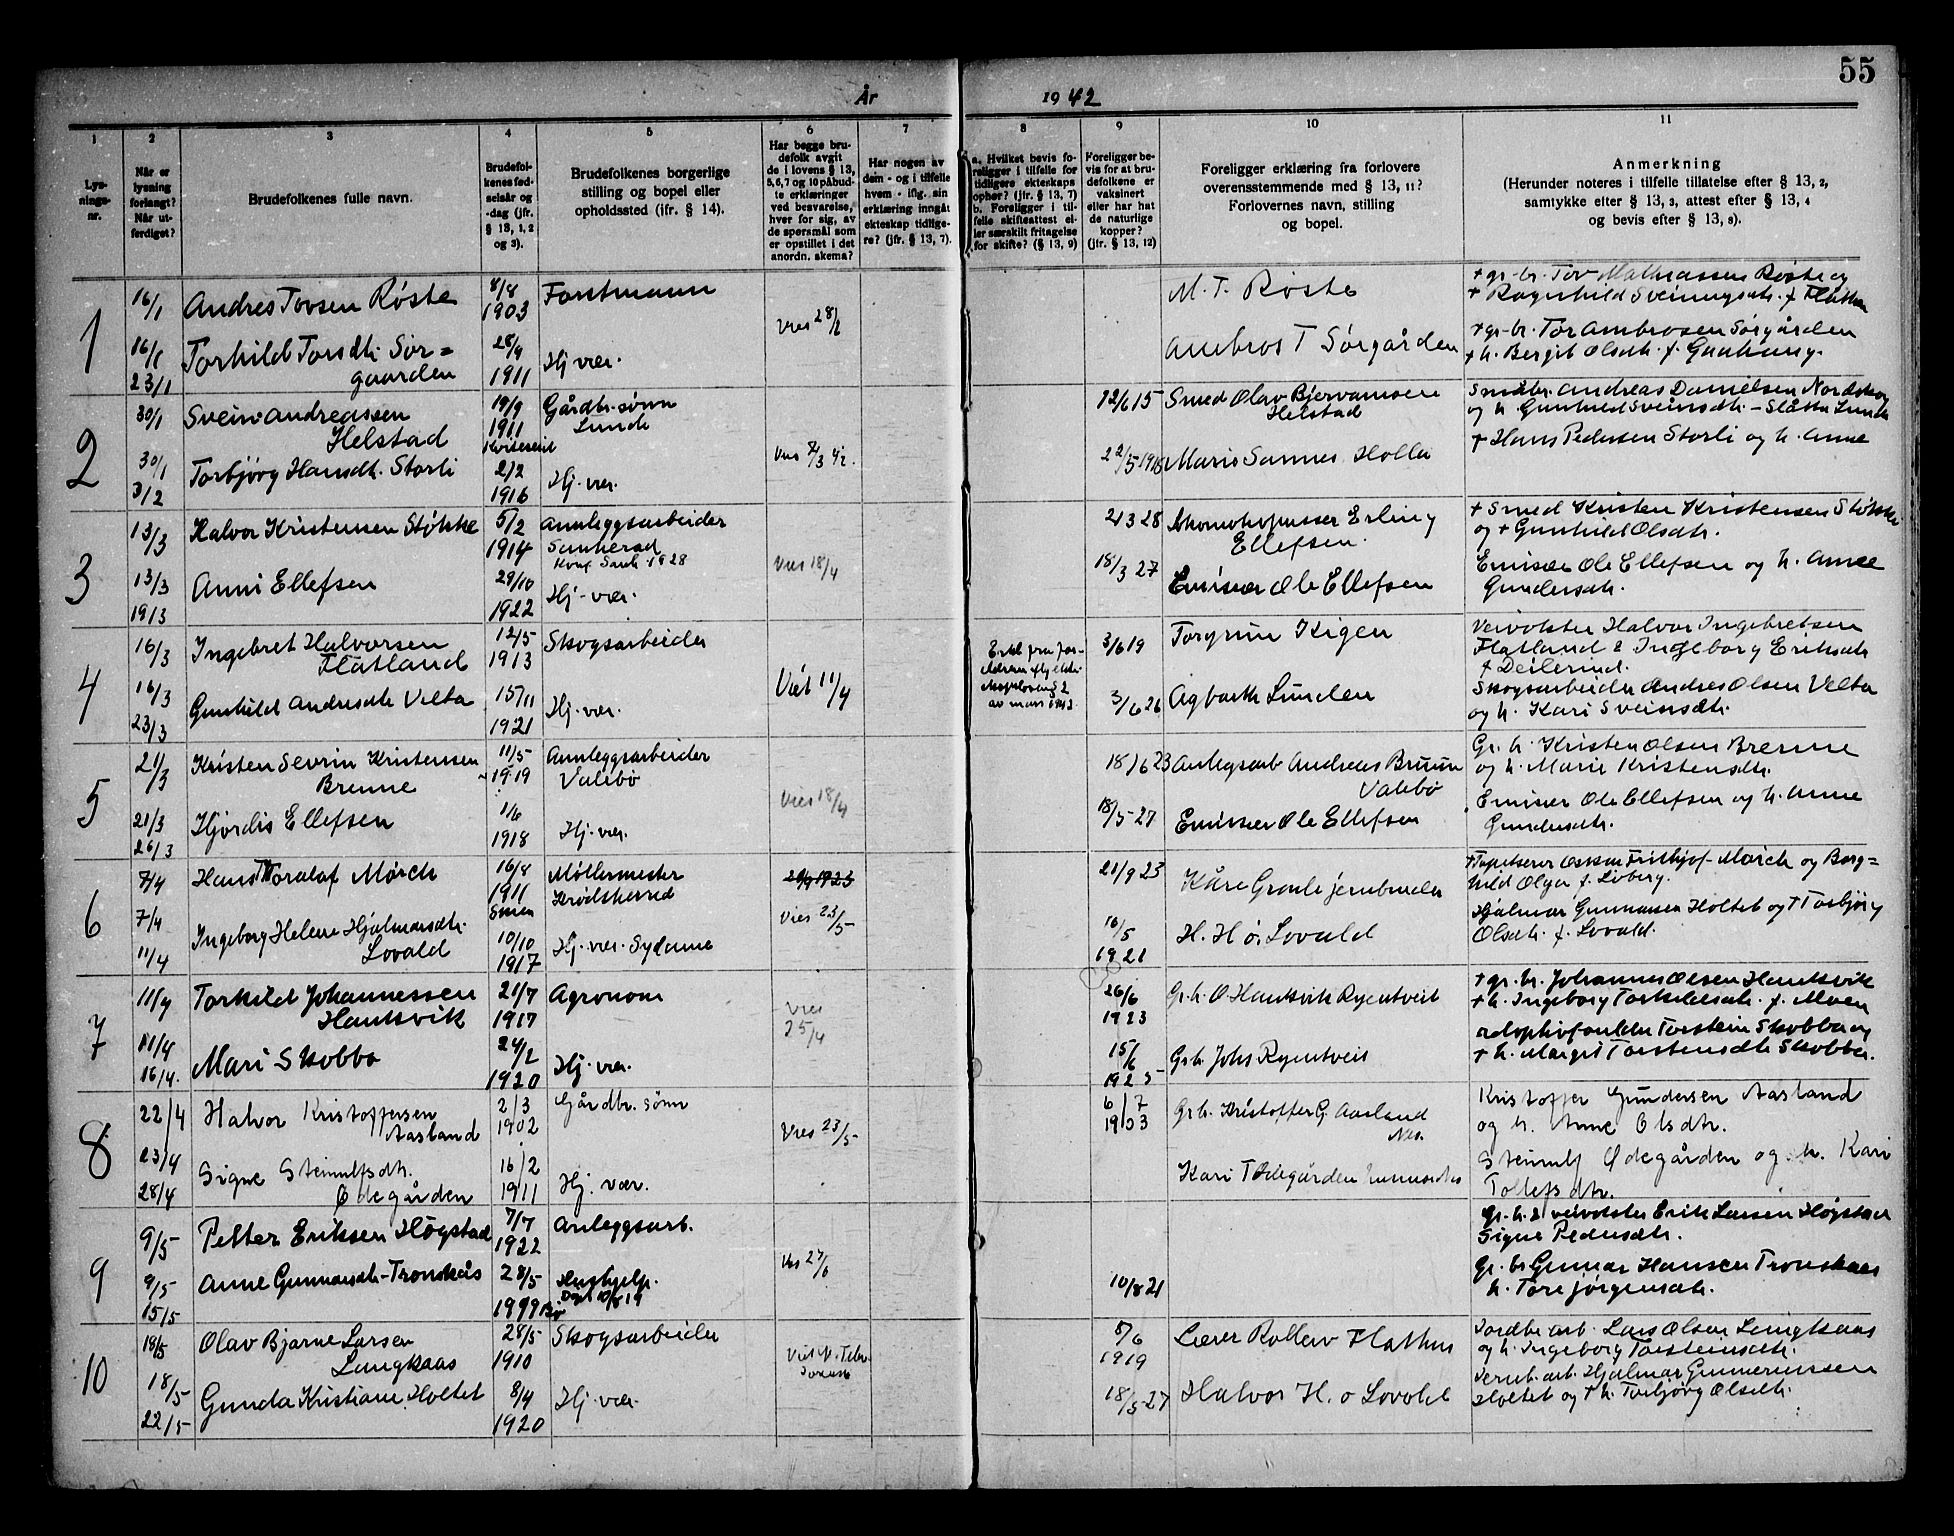 55
År 1942
1 2 3 4 5 6 7 8 9 10 11
Lys-
nings-
nr.
Når er
lysning
forlangt?
Når ut-
ferdiget?
Brudefolkenes fulle navn.
Brudefol-
kenes fød-
selsår og
-dag (jfr.
§ 13, 1, 2
og 3).
Brudefolkenes borgerlige
stilling og bopel eller
opholdssted (ifr. § 14).
Har begge bru-
defolk avgit
de i lovens § 13,
5, 6, 7 og 10 påbud-
te erklæringer
ved besvarelse,
hver for sig, av
de spørsmål som
er opstillet i det
anordn. skema?
Har nogen av
dem - og i tilfelle
hvem - iflg. sin
erklæring inngåt
ekteskap tidlige-
re? (jfr. § 13, 7).
a. Hvilket bevis fo-
religger i tilfelle for
tidligere ekteskaps
ophør? (jfr. § 13, 7)
b. Foreligger i til-
felle skifteattest el-
ler særskilt fritagelse
for skifte? (§ 13, 9)
Foreligger be-
vis for at bru-
defolkene er
vaksinert
eller har hat
de naturlige
kopper?
(jfr. § 13, 12)
Foreligger erklæring fra forlovere
overensstemmende med § 13, 11?
Forlovernes navn, stilling
og bopel.
Anmerkning
(Herunder noteres i tilfelle tillatelse efter § 13, 2,
samtykke efter § 13, 3, attest efter § 13, 4
og bevis efter § 13, 8).
1
16/1 Andres Tovsen Røste 8/8 1903 Forstmann
M. T. Røste
+ gr.br. Tov Mathiassen Røste og
+ Ragnhild Sveinungsdtr. f. Flatin
16/1 23/1 Torhild Torsdtr. Sør=
gaarden 28/9 1911 Hj. vær.
Vies 28/2
Ambros T Sørgården
+ gr.br. Tor Ambrosen Sørgården
+ h. Bergit Olsdtr. f.
2
30/1 Svein Andreassen
Helstad 19/9 1911 Kviteseid Gårdbr. sønn
Lunde
12/6 15 Smed Olav Bjervamoen
Helstad
Småbr. Andreas Danielsen Nordskog
og h. Gunhild Sveinsdtr. - Slåtta Lunde
30/1 3/2 Torbjørg Hansdtr. Storli 2/2 1916 Hj. vær.
22/5 1918 Maris Sannes Holla
+ Hans Pedersen Storli og h. Anne
3
13/3 Halvor Kristensen Stokke 5/2 1914 Annleggsarbeider
Sauherad
Konf. Sauh. 1928
Vies 18/4
21/3 28 Skomakopusser Erling
Ellefsen.
+ Smed Kristen Kristensen Stokke
og + Gunhild Olsdtr.
13/3 19/3 Anni Ellefsen 29/10 1922 Hj. vær.
18/3 27 Emisær Ole Ellefsen
Emisær Ole Ellefsen og h. Anne
Gundersdtr.
4
16/3 Ingebret Halvorsen
Flatland 12/5 1913 Skogsarbeider
3/6 19 Torgrim Kigen
Veivokter Halvor Ingebretsen
Flatland & Ingeborg Eriksdtr
f. Deilerud.
16/3 23/3 Gunhild Andresdtr Velta 15/11 1921 Hj. vær.
Viet 11/4
av mars 1942.
3/6 26 Agbarth Lunden
Skogsarbeider Andres Olsen Velta
og h. Kari Sveinsdtr.
5
21/3 Kristen Sevrin Kristensen
Brenne 11/5 1919 Annleggsarbeider
Valebø
Vies 18/4
18/6 23 Anlegsarb Andreas Bruun
Valebø
Gr. h. Kristen Olsen Brenne
og h. Marie Kristensdtr.
21/3 26/3 Hjørdis Ellefsen 1/6 1918 Hj. vær.
18/5-27 Emisær Ole Ellefsen
Emisær Ole Ellefsen og h. Anne
Gundersdtr.
6
7/4 Hans Thoralaf Mørch 16/8 1911 Møllermester
Krødsherred
21/9 23 Kåre Graule jernbruder
+ Tapetserer Oskar Frithjof Mørch og Borg=
hild Olga f. Liberg.
7/4 11/4 Ingeborg Helene Hjalmarsdtr.
Lovald 10/10 1917 Hj. vær. Sydame
Vies 23/5
16/5 1921 H. H. ø. Lovald
Hjalmar Gunnarsen Holtet og + Torbjørg
Olsdtr. f. Lovald.
7
11/4 Torkild Johannessen
Hauksvik 21/7 1917 Agronom
Vies
25/4
26/6 1923 Gr.b. O Hauksvik Ryentveit
+ gr. br. Johannes Olsen Hauksvik
+ h. Ingeborg Torkildsdtr. f. Moen
11/4 16/4. Mari Skobba 24/2 1920 Hj. vær.
15/6 1925 Grb. Johs Ryentveit
adoptivforeldre Torstein Skobba og
+ h. Margit Torsteinsdtr Skobba.
8
22/4 Halvor Kristoffersen
Aasland 2/3 1902 Gårdbr. sønn
Vies 23/5
6/7 1903 Grb. Kristoffer G. Aasland
Nes.
Kristoffer Gundersen Aasland
og h. Anne Olsdtr.
23/4 28/4 Signe Steinulfsdtr.
Ødegården 16/2 1911 Hj. vær.
Kari T Ødegården
Steinulf Ødegården og h. Kari
Tollefsdtr.
9
9/5 Petter Eriksen Høgstad 7/7 1922 Anleggsarb.
gr. h. & veivokter Erik Larsen Høgstad
Signe Pedersdtr.
9/5 15/5 Anne Gunnarsdtr. Tronskås 28/5 1919 Bø Hushjelp.
Døpt 10/8 19
Vies 27/6
10/8 21
Gr. br Gunnar Hansen Tronskaas
h. Tore Jørgensdtr.
10
18/5 Olav Bjarne Larsen
Langkaas 28/5 1910 Skogsarbeider
8/6 1919 Lærer Rolleiv Flathus
Jordbr. arb. Lars Olsen Langkaas
og h. Ingeborg Torsteinsdtr.
18/5 22/5 Gunda Kristiane Holtet 8/4 1920 Hj. vær.
18/5-27 Halvor H. ø Lovald
Jernb. arb. Hjalmar Gunneriussen
Holtet og + h. Torbjørg Olsdtr.